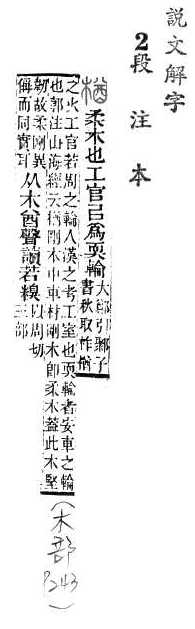 說文解字
2段注本
楢 柔木也工官㠯為耎輪
大鄭引鄹子
書秋取柞楢
之火工官若周之輪人漢之考工室也耎輪者安車之輪
也郭注山海經云楢剛木中車材剛木卽柔木蓋此木堅
韌故柔剛異
偁而同實耳
从木酋聲讀若糗
以周切
三部
(木部P243)